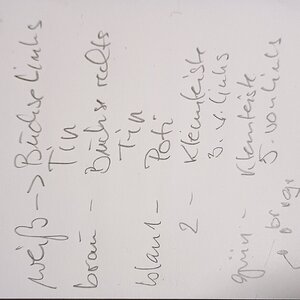 weiß -> Büchse links
Tip
braun - Büchse rechts
Tip
blau 1 - Poti
2 - Klemmleiste
3. v. links
grün - Klemmleiste
5. von links